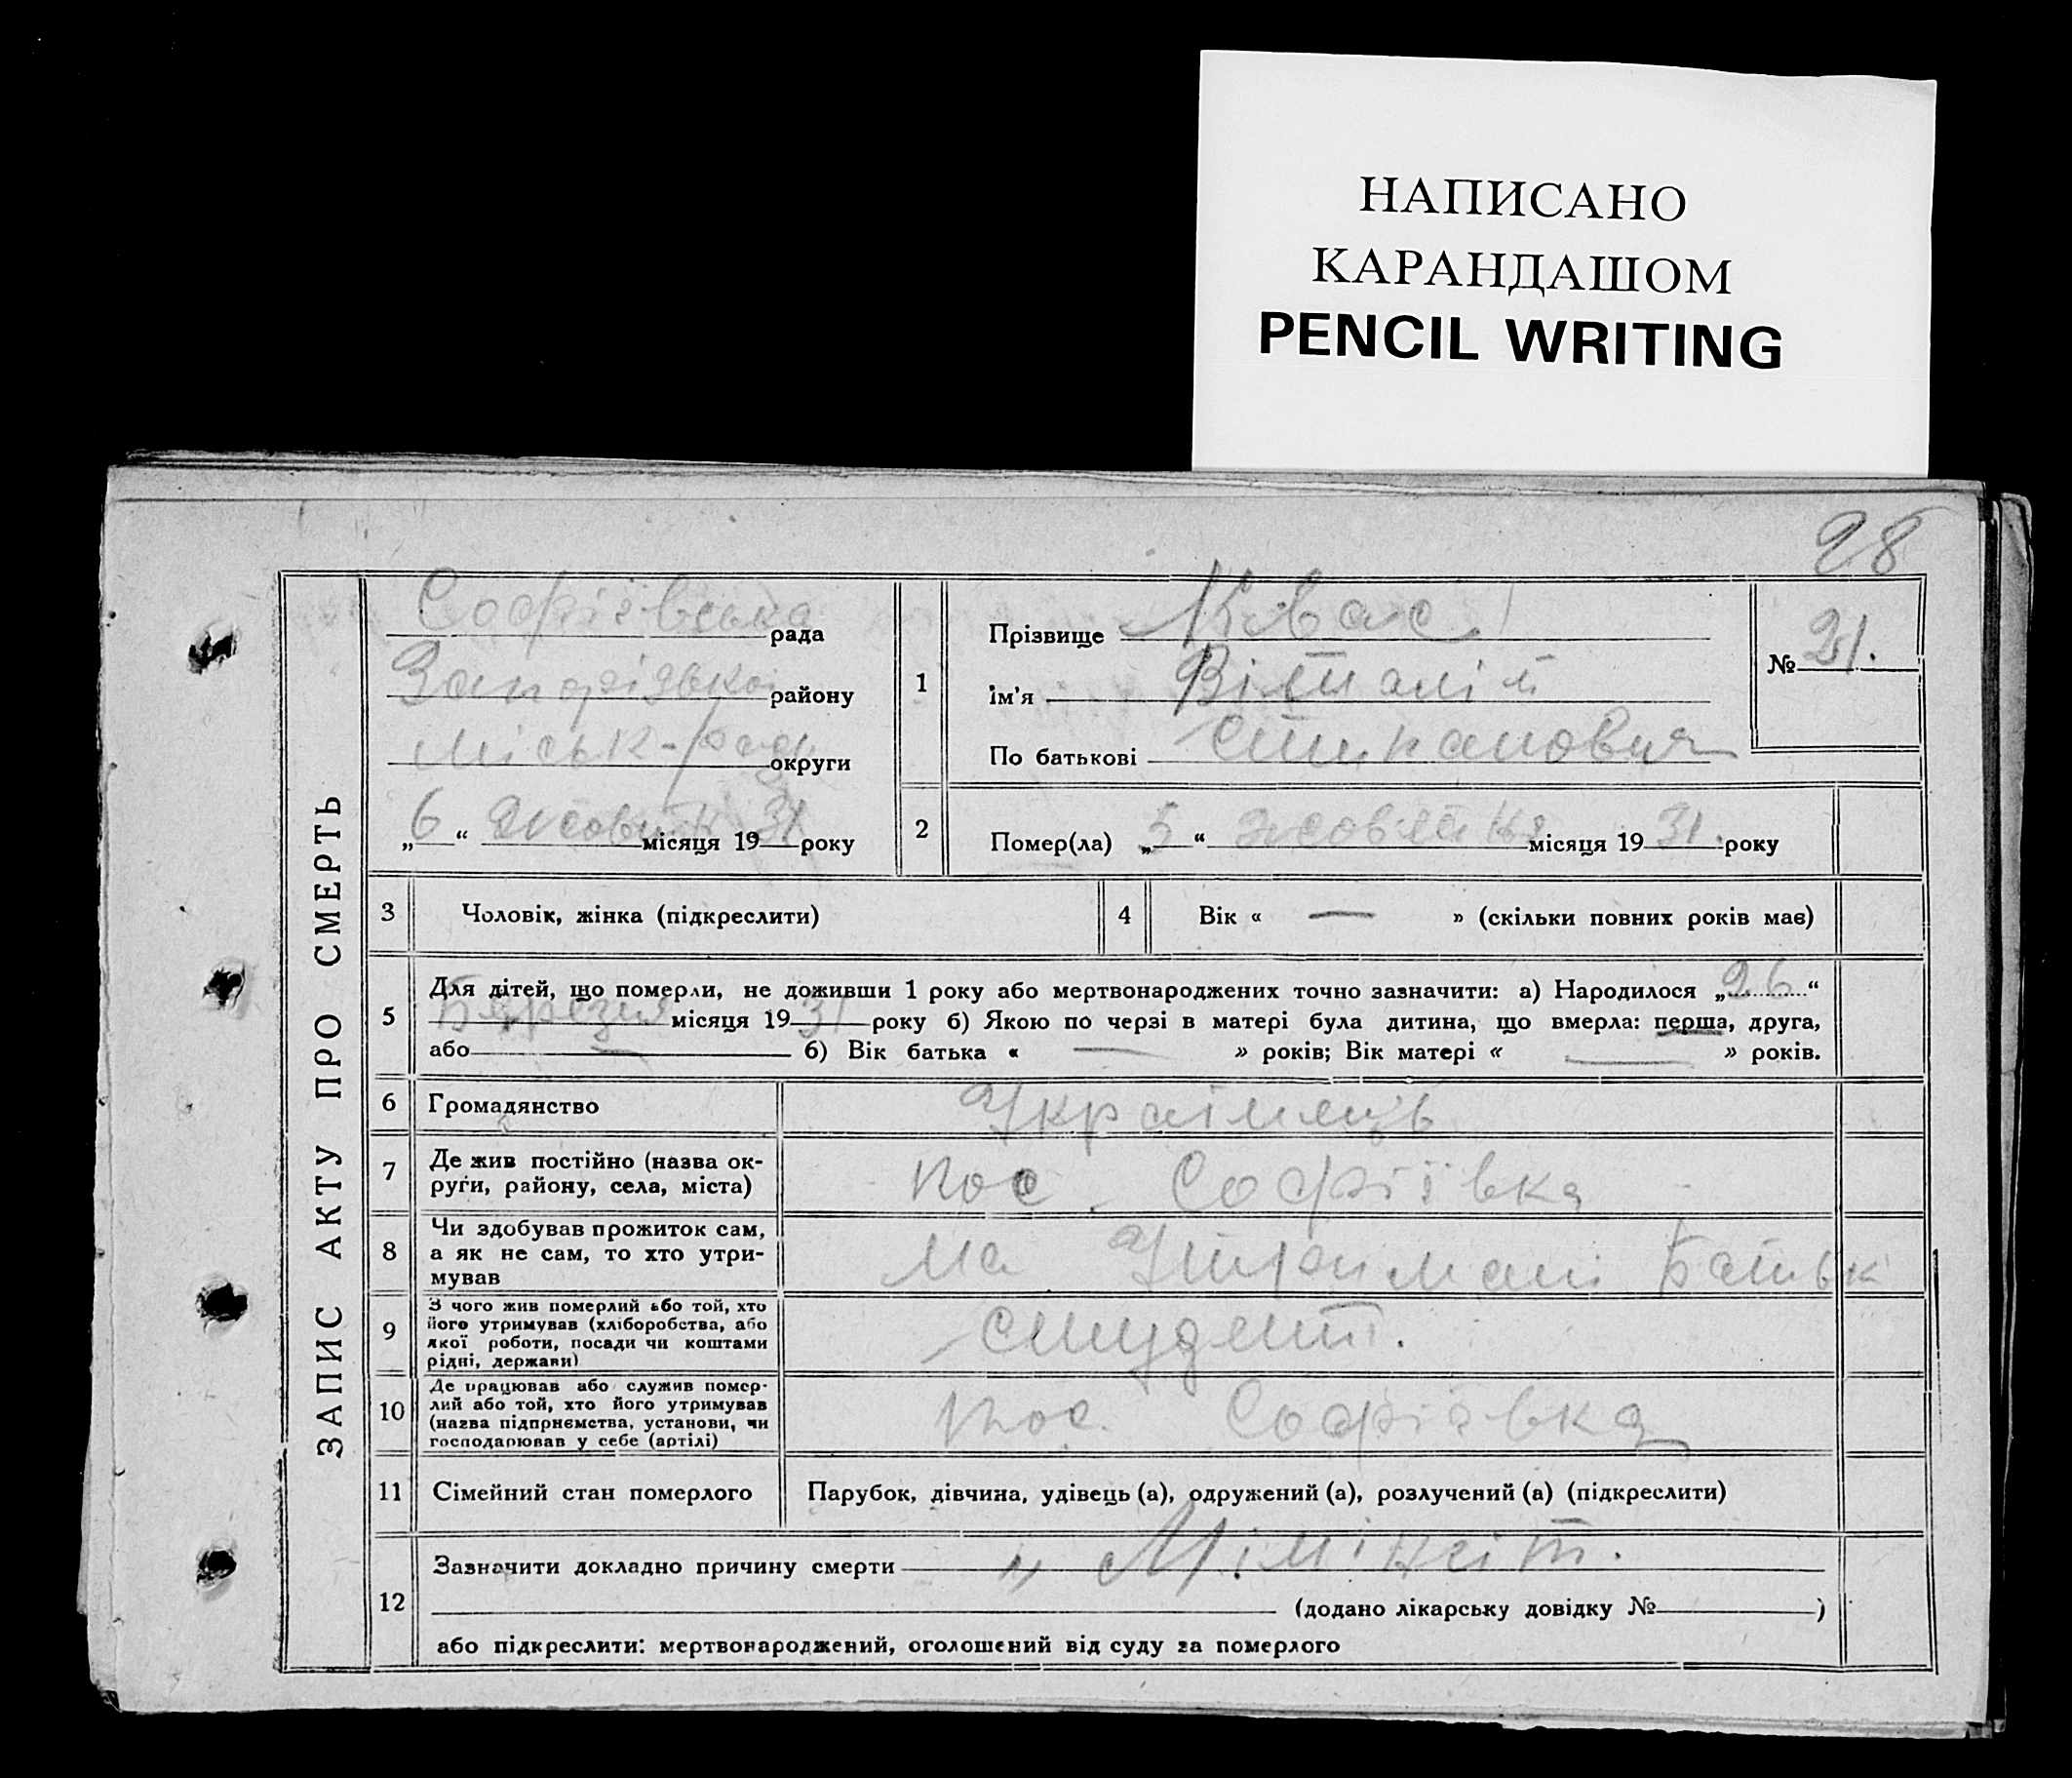 НАПИСАНО
КАРАНДАШОМ
PENCIL WRITING
28
ЗАПИС АКТУ ПРО СМЕРТЬ
Софіївська рада
Запорізької району
Міськ-ради округи
„6“ Жовтня місяця 1931 року
1
Прізвище Квас
Ім'я Віталій
По батькові Степанович
№ 21.
2
Помер(ла) „5“ жовтня місяця 1931. року
3 Чоловік, жінка (підкреслити)
4 Вік « — » (скільки повних років має)
5 Для дітей, що померли, не доживши 1 року або мертвонароджених точно зазначити: а) Народилося „26“
Березня місяця 1931 року б) Якою по черзі в матері була дитина, що вмерла: перша, друга,
або — б) Вік батька « — » років; Вік матері « — » років.
6 Громадянство Українець
7 Де жив постійно (назва ок-
руги, району, села, міста) пос. Софіївка
8 Чи здобував прожиток сам,
а як не сам, то хто утри-
мував На Утримані батьк
9 З чого жив померлий або той, хто
його утримував (хліборобства, або
якої роботи, посади чи коштами
рідні, держави) студент.
10 Де працював або служив помер-
лий або той, хто його утримував
(назва підприємства, установи, чи
господарював у себе (артілі) пос. Софіївка
11 Сімейний стан померлого Парубок, дівчина, удівець (а), одружений (а), розлучений (а) (підкреслити)
12 Зазначити докладно причину смерти „
(додано лікарську довідку № )
або підкреслити: мертвонароджений, оголошений від суду за померлого